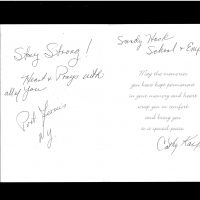 Stay Strong!
Heart & Prays with
all of you
Port Jervis
Ny.
Sandy Hook
School & Emp
May the memories
you have kept permanent
in your memory and heart
wrap you in comfort
and bring you
to a special peace.
Cathy